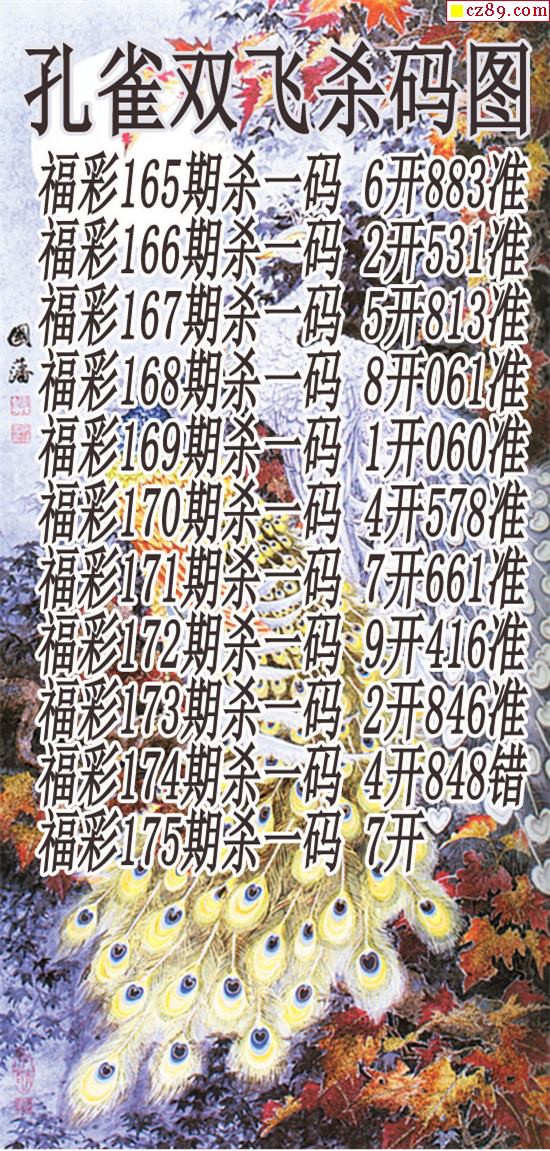 cz89.com
孔雀双飞杀码图
福彩165期杀一码 6开883准
福彩166期杀一码 2开531准
福彩167期杀一码 5开813准
福彩168期杀一码 8开061准
福彩169期杀一码 1开060准
福彩170期杀一码 4开578准
福彩171期杀一码 7开661准
福彩172期杀一码 9开416准
福彩173期杀一码 2开846准
福彩174期杀一码 4开848错
福彩175期杀一码 7开
國藩